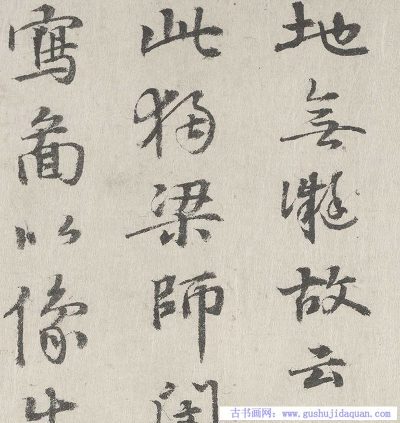 地無故云
此獨梁師閔
寫圖以像
古书画网：www.gushujidaquan.com